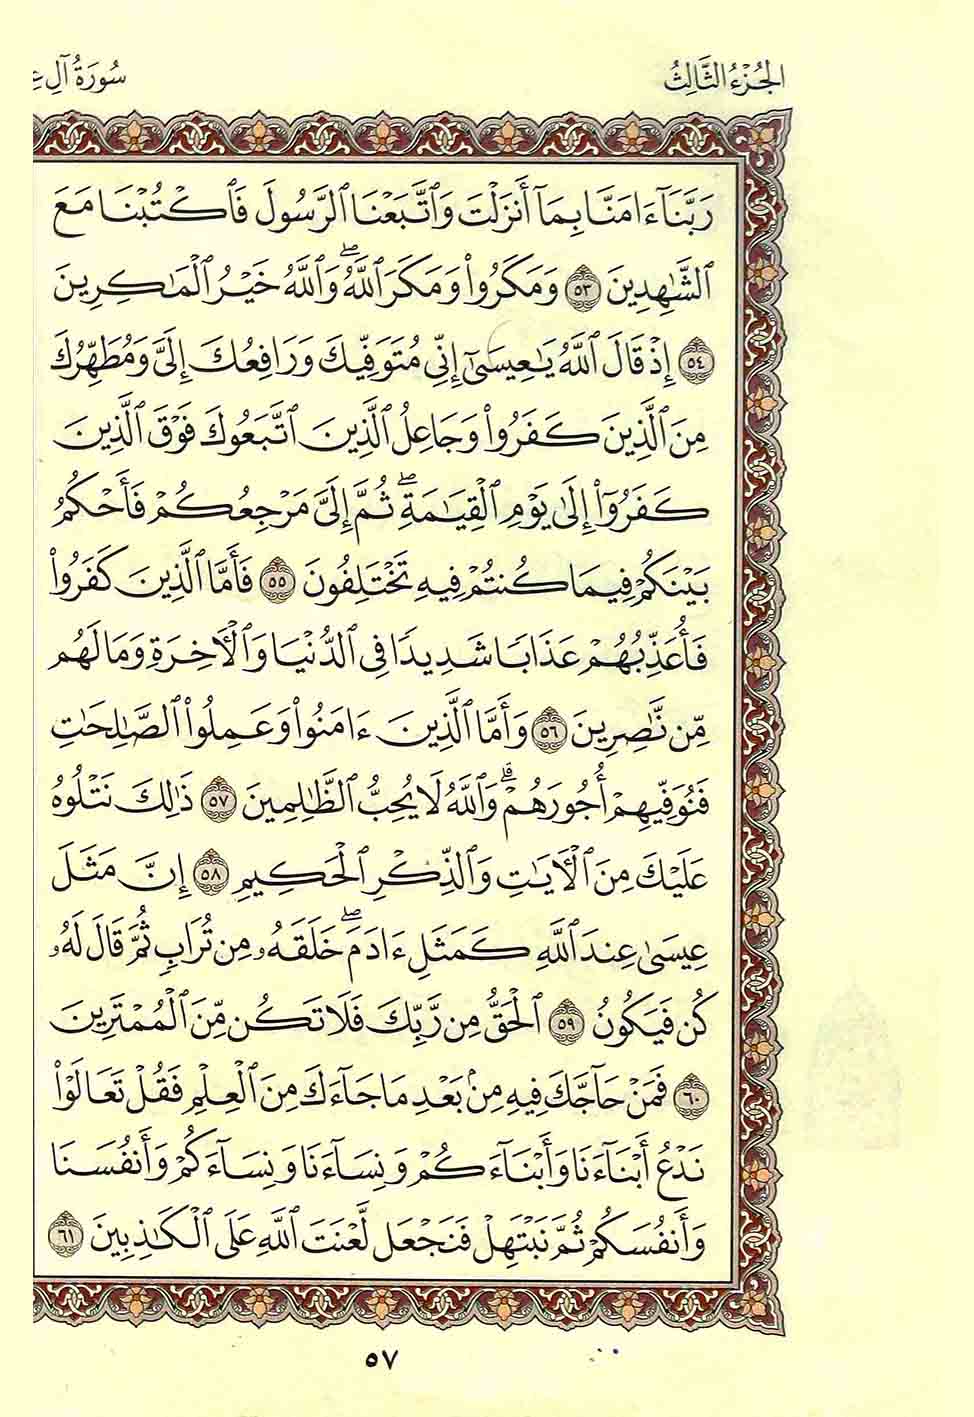 الجُزْءُ الثَّالِثُ
سُورَةُ آلِ
رَبَّنَآ ءَامَنَّا بِمَآ أَنزَلْتَ وَٱتَّبَعْنَا ٱلرَّسُولَ فَٱكْتُبْنَا مَعَ
ٱلشَّٰهِدِينَ ٥٣ وَمَكَرُوا۟ وَمَكَرَ ٱللَّهُ ۖ وَٱللَّهُ خَيْرُ ٱلْمَٰكِرِينَ
٥٤ إِذْ قَالَ ٱللَّهُ يَٰعِيسَىٰٓ إِنِّى مُتَوَفِّيكَ وَرَافِعُكَ إِلَىَّ وَمُطَهِّرُكَ
مِنَ ٱلَّذِينَ كَفَرُوا۟ وَجَاعِلُ ٱلَّذِينَ ٱتَّبَعُوكَ فَوْقَ ٱلَّذِينَ
كَفَرُوٓا۟ إِلَىٰ يَوْمِ ٱلْقِيَٰمَةِ ۖ ثُمَّ إِلَىَّ مَرْجِعُكُمْ فَأَحْكُمُ
بَيْنَكُمْ فِيمَا كُنتُمْ فِيهِ تَخْتَلِفُونَ ٥٥ فَأَمَّا ٱلَّذِينَ كَفَرُوا۟
فَأُعَذِّبُهُمْ عَذَابًا شَدِيدًا فِى ٱلدُّنْيَا وَٱلْءَاخِرَةِ وَمَا لَهُم
مِّن نَّٰصِرِينَ ٥٦ وَأَمَّا ٱلَّذِينَ ءَامَنُوا۟ وَعَمِلُوا۟ ٱلصَّٰلِحَٰتِ
فَنُوَفِّيهِمْ أُجُورَهُمْ ۗ وَٱللَّهُ لَا يُحِبُّ ٱلظَّٰلِمِينَ ٥٧ ذَٰلِكَ نَتْلُوهُ
عَلَيْكَ مِنَ ٱلْءَايَٰتِ وَٱلذِّكْرِ ٱلْحَكِيمِ ٥٨ إِنَّ مَثَلَ
عِيسَىٰ عِندَ ٱللَّهِ كَمَثَلِ ءَادَمَ ۖ خَلَقَهُۥ مِن تُرَابٍ ثُمَّ قَالَ لَهُۥ
كُن فَيَكُونُ ٥٩ ٱلْحَقُّ مِن رَّبِّكَ فَلَا تَكُن مِّنَ ٱلْمُمْتَرِينَ
٦٠ فَمَنْ حَآجَّكَ فِيهِ مِنۢ بَعْدِ مَا جَآءَكَ مِنَ ٱلْعِلْمِ فَقُلْ تَعَالَوْا۟
نَدْعُ أَبْنَآءَنَا وَأَبْنَآءَكُمْ وَنِسَآءَنَا وَنِسَآءَكُمْ وَأَنفُسَنَا
وَأَنفُسَكُمْ ثُمَّ نَبْتَهِلْ فَنَجْعَل لَّعْنَتَ ٱللَّهِ عَلَى ٱلْكَٰذِبِينَ ٦١
٥٧